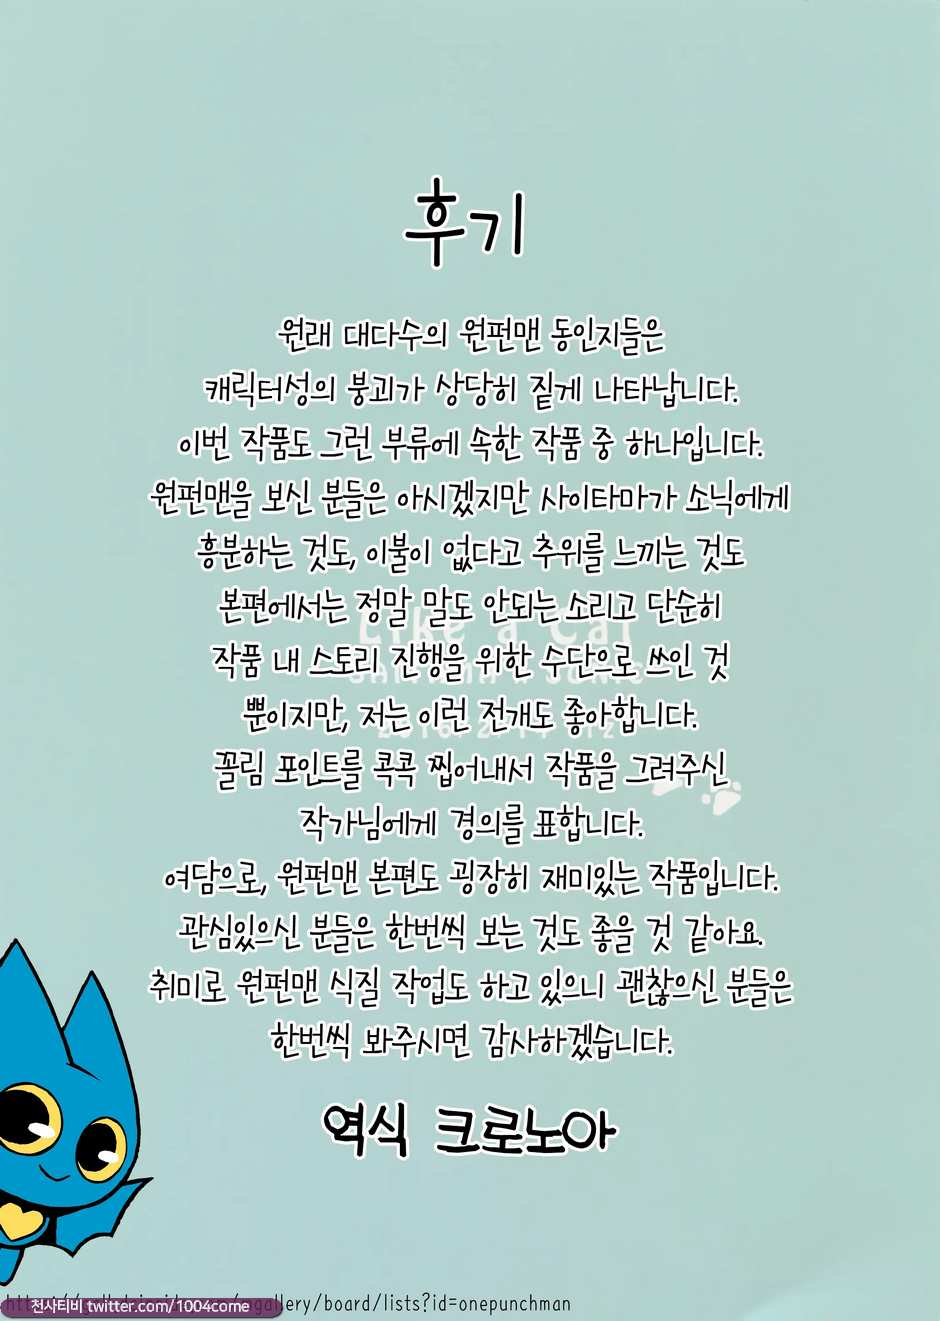 후기
원래 대다수의 원펀맨 동인지들은
캐릭터성의 붕괴가 상당히 짙게 나타납니다.
이번 작품도 그런 부류에 속한 작품 중 하나입니다.
원펀맨을 보신 분들은 아시겠지만 사이타마가 소닉에게
흥분하는 것도, 이불이 없다고 추위를 느끼는 것도
본편에서는 정말 말도 안되는 소리고 단순히
작품 내 스토리 진행을 위한 수단으로 쓰인 것
뿐이지만, 저는 이런 전개도 좋아합니다.
꼴림 포인트를 콕콕 찝어내서 작품을 그려주신
작가님에게 경의를 표합니다.
여담으로, 원펀맨 본편도 굉장히 재미있는 작품입니다.
관심있으신 분들은 한번씩 보는 것도 좋을 것 같아요.
취미로 원펀맨 식질 작업도 하고 있으니 괜찮으신 분들은
한번씩 봐주시면 감사하겠습니다.
역식 크로노아
Like a Cat
천사티비 twitter.com/1004come
gallery/board/lists?id=onepunchman